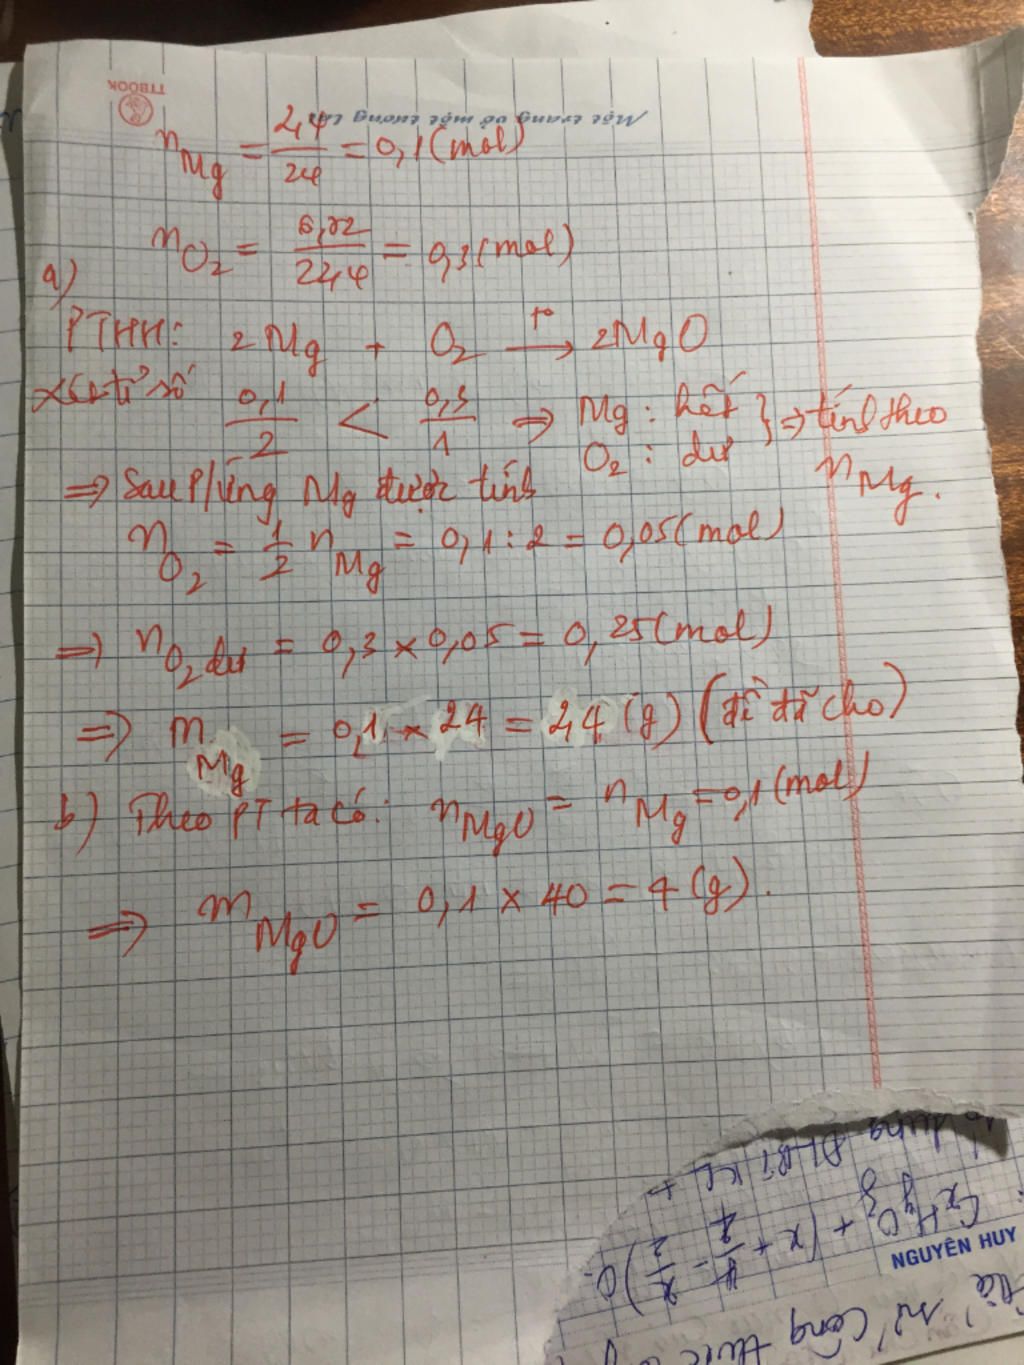 TTBOOK
Một trang vở một tương lai
n Mg = 2,4/24 = 0,1 (mol)
n O2 = 6,72/22,4 = 0,3 (mol)
a)
PTHH: 2Mg + O2 →t° 2MgO
Xét tỉ số 0,1/2 < 0,3/1 ⇒ Mg : hết O2 : dư } ⇒ tính theo n Mg.
⇒ Sau p/ứng Mg được tính
n O2 = 1/2 n Mg = 0,1 : 2 = 0,05 (mol)
⇒ n O2 dư = 0,3 × 0,05 = 0,25 (mol)
⇒ m Mg = 0,1 × 24 = 2,4 (g) (đề đã cho)
b) Theo PT ta có: n MgO = n Mg = 0,1 (mol)
⇒ m MgO = 0,1 × 40 = 4 (g).
dụng ĐLBT KL
CxHyOz + (x + y/4 - z/2) O
NGUYÊN HUY
công thức